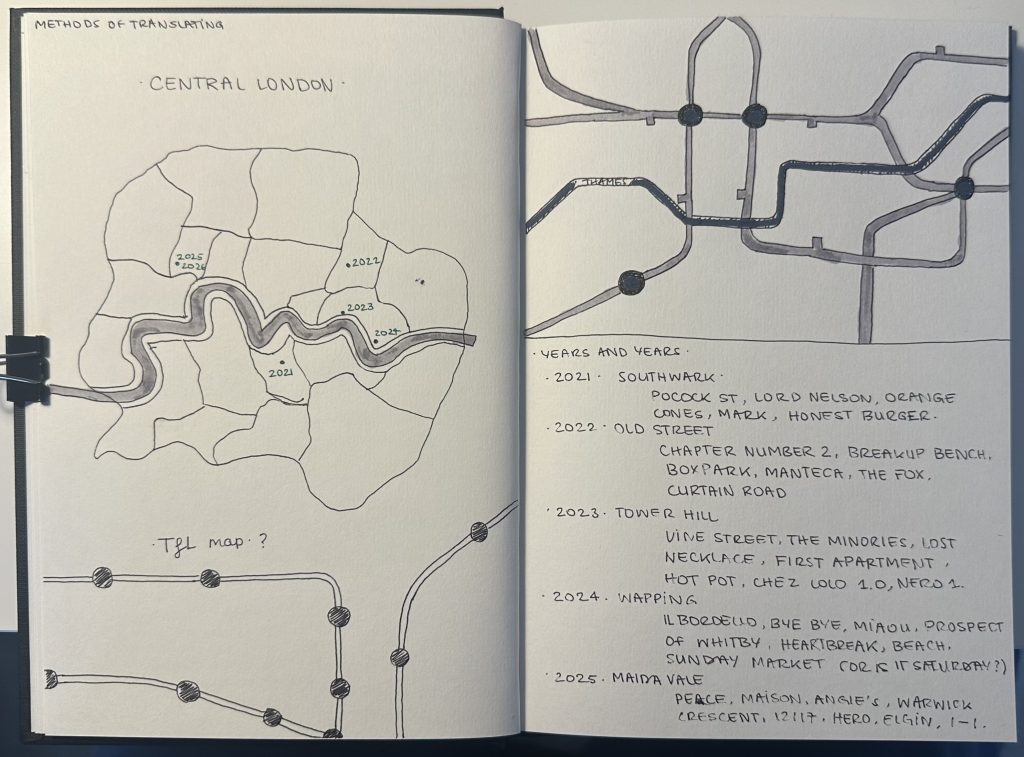 METHODS OF TRANSLATING
· CENTRAL LONDON ·
2025
2026
2022
2023
2024
2021
· TfL map · ?
THAMES
· YEARS AND YEARS ·
· 2021 · SOUTHWARK ·
POCOCK ST, LORD NELSON, ORANGE
CONES, MARK, HONEST BURGER.
· 2022 · OLD STREET
CHAPTER NUMBER 2, BREAKUP BENCH,
BOXPARK, MANTECA, THE FOX,
CURTAIN ROAD
· 2023 · TOWER HILL
VINE STREET, THE MINORIES, LOST
NECKLACE, FIRST APARTMENT,
HOT POT, CHEZ LOLO 1.0, NERO 1.
· 2024 · WAPPING
IL BORDELLO, BYE BYE, MIAOU, PROSPECT
OF WHITBY, HEARTBREAK, BEACH,
SUNDAY MARKET (OR IS IT SATURDAY?)
· 2025 · MAIDA VALE
PEACE, MAISON, ANGIE'S, WARWICK
CRESCENT, 12117, HERO, ELGIN, 1-1.